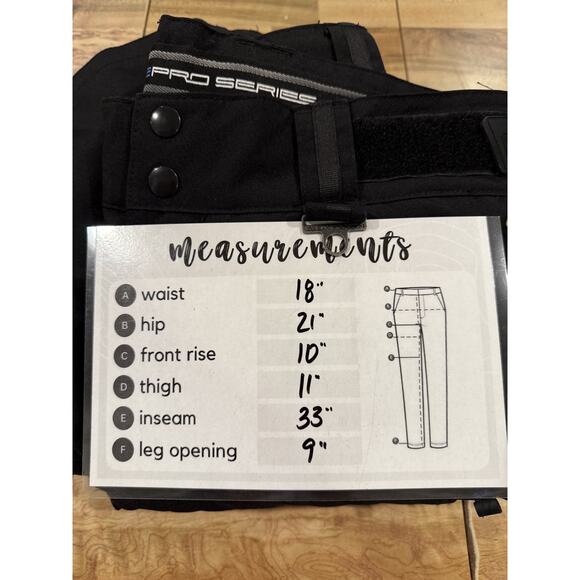 PRO SERIES
measurements
A waist 18"
B hip 21"
C front rise 10"
D thigh 11"
E inseam 33"
F leg opening 9"